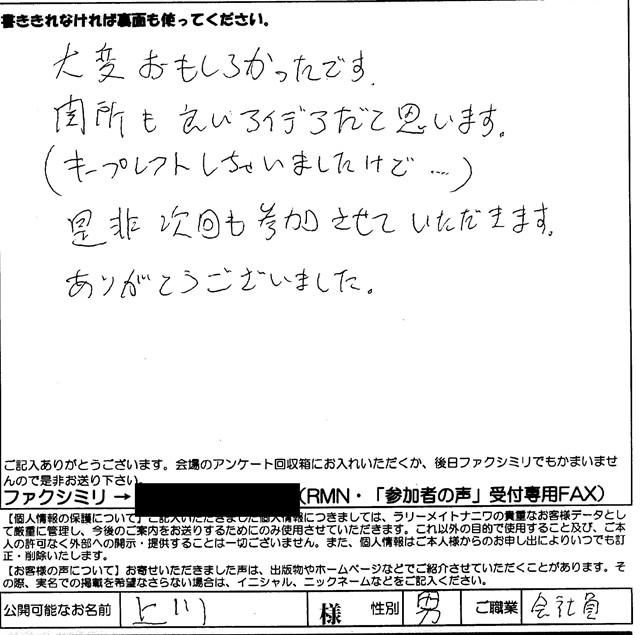 書ききれなければ裏面も使ってください。
大変おもしろかったです。
関所も良いアイデアだと思います。
(キープレフトしちゃいましたけど…)
是非次回も参加させていただきます。
ありがとうございました。
ご記入ありがとうございます。会場のアンケート回収箱にお入れいただくか、後日ファクシミリでもかまいませ
んので是非お送り下さい。
ファクシミリ→ (RMN・「参加者の声」受付専用FAX)
【個人情報の保護について】ご記入いただきました個人情報につきましては、ラリーメイトナニワの貴重なお客様データとし
て厳重に管理し、今後のご案内をお送りするためにのみ使用させていただきます。これ以外の目的で使用すること及び、ご本
人の許可なく外部への開示・提供することは一切ございません。また、個人情報はご本人様からのお申し出によりいつでも訂
正・削除いたします。
【お客様の声について】お寄せいただきました声は、出版物やホームページなどでご紹介させていただくことがあります。そ
の際、実名での掲載を希望なさらない場合は、イニシャル、ニックネームなどをご記入ください。
公開可能なお名前 上川 様 性別 男 ご職業 会社員